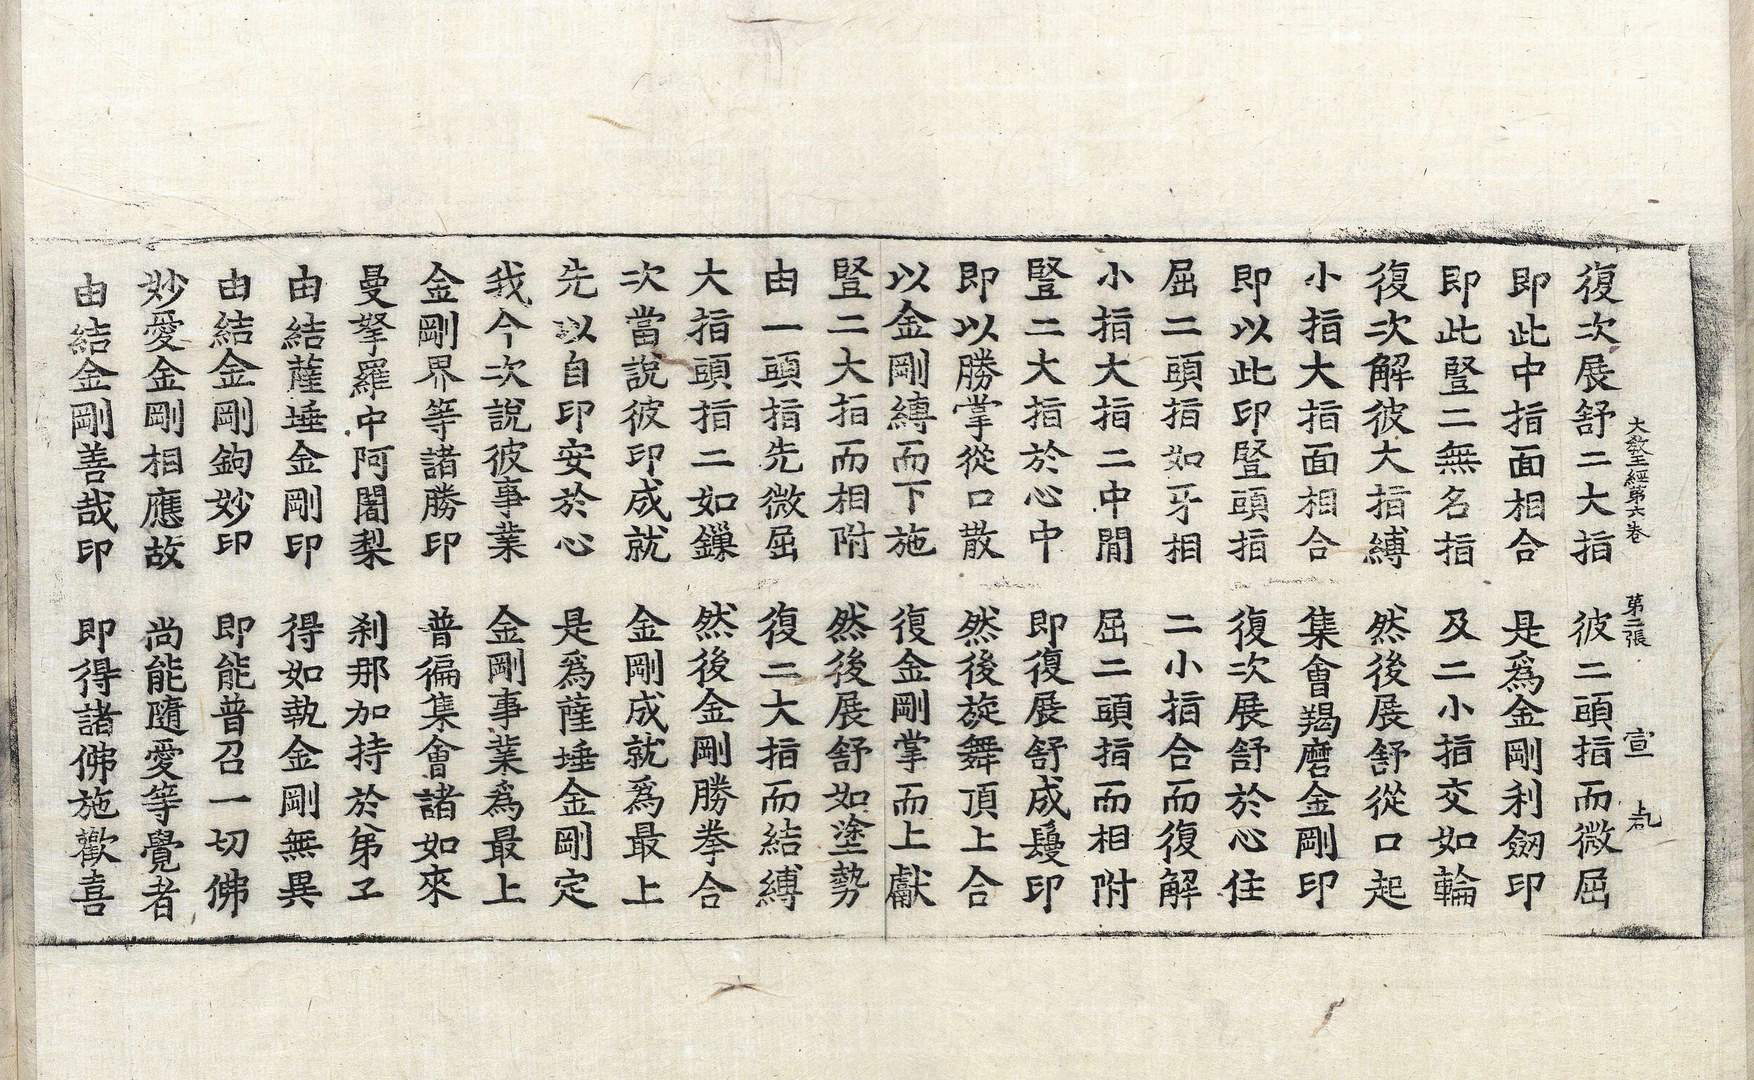 大教王經第六卷 第二張 宣
復次展舒二大指 彼二頭指而微屈
即此中指面相合 是爲金剛利劒印
即此豎二無名指 及二小指交如輪
復次解彼大指縛 然後展舒從口起
小指大指面相合 集會羯磨金剛印
即以此印豎頭指 復次展舒於心住
屈二頭指如牙相 二小指合而復解
小指大指二中間 屈二頭指而相附
豎二大指於心中 即復展舒成鬘印
即以勝掌從口散 然後旋舞頂上合
以金剛縛而下施 復金剛掌而上獻
豎二大指而相附 然後展舒如塗勢
由一頭指先微屈 復二大指而結縛
大指頭指二如鏁 然後金剛勝拳合
次當說彼印成就 金剛成就爲最上
先以自印安於心 是爲薩埵金剛定
我今次說彼事業 金剛事業爲最上
金剛界等諸勝印 普徧集會諸如來
曼拏羅中阿闍梨 剎那加持於弟子
由結薩埵金剛印 得如執金剛無異
由結金剛鉤妙印 即能普召一切佛
妙愛金剛相應故 尚能隨愛等覺者
由結金剛善哉印 即得諸佛施歡喜